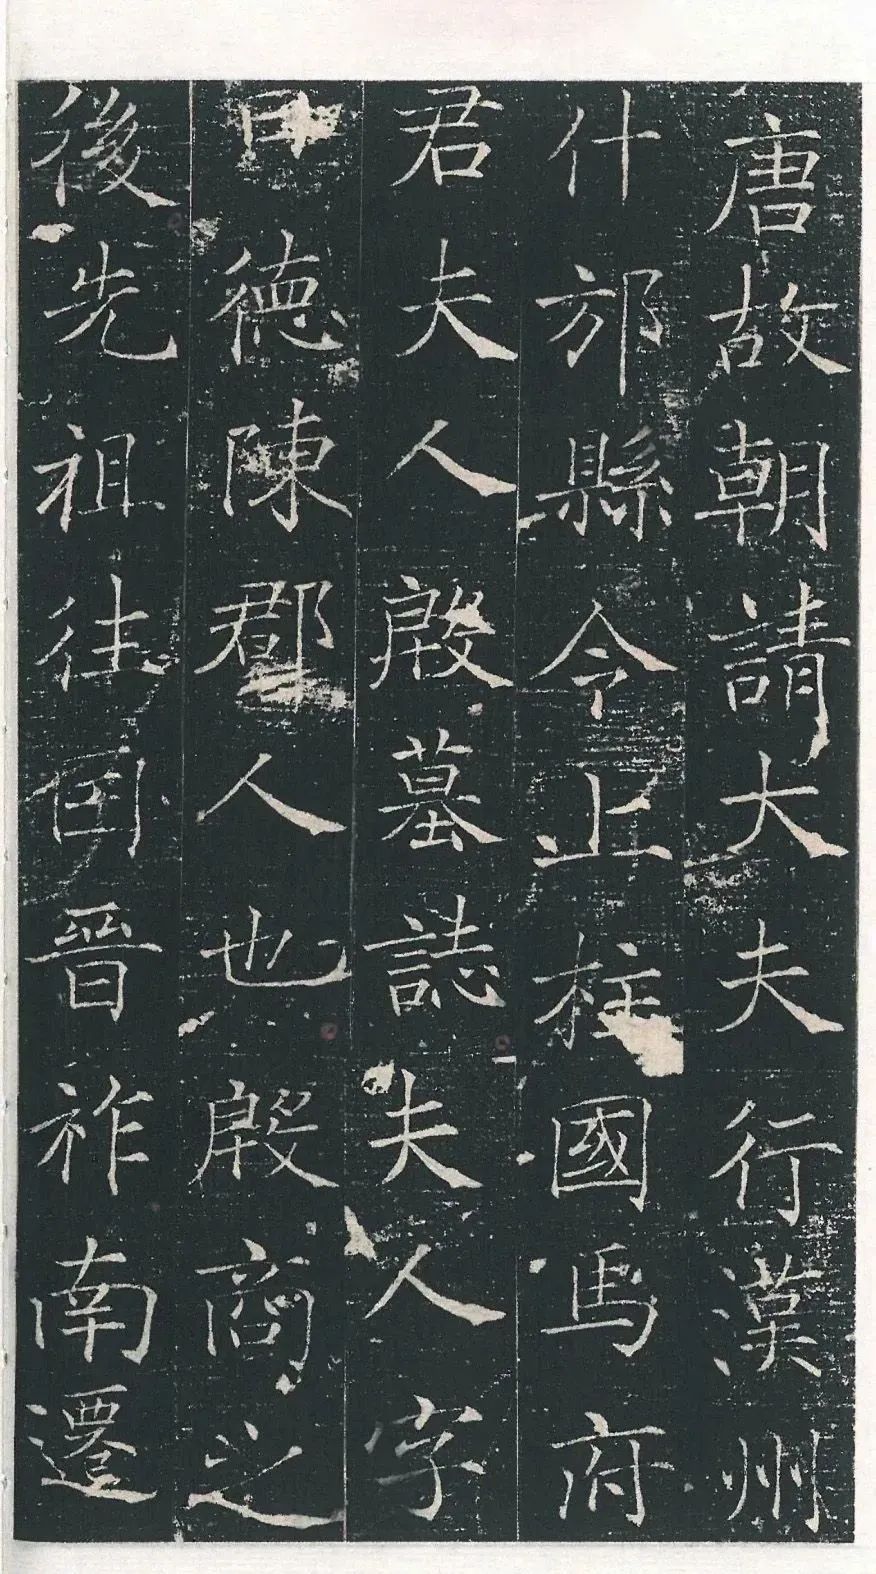 唐故朝請大夫行漢州
什邡縣令上柱國馬府
君夫人殷墓誌夫人字
日德陳郡人也殷商之
後先祖往因晉祚南遷